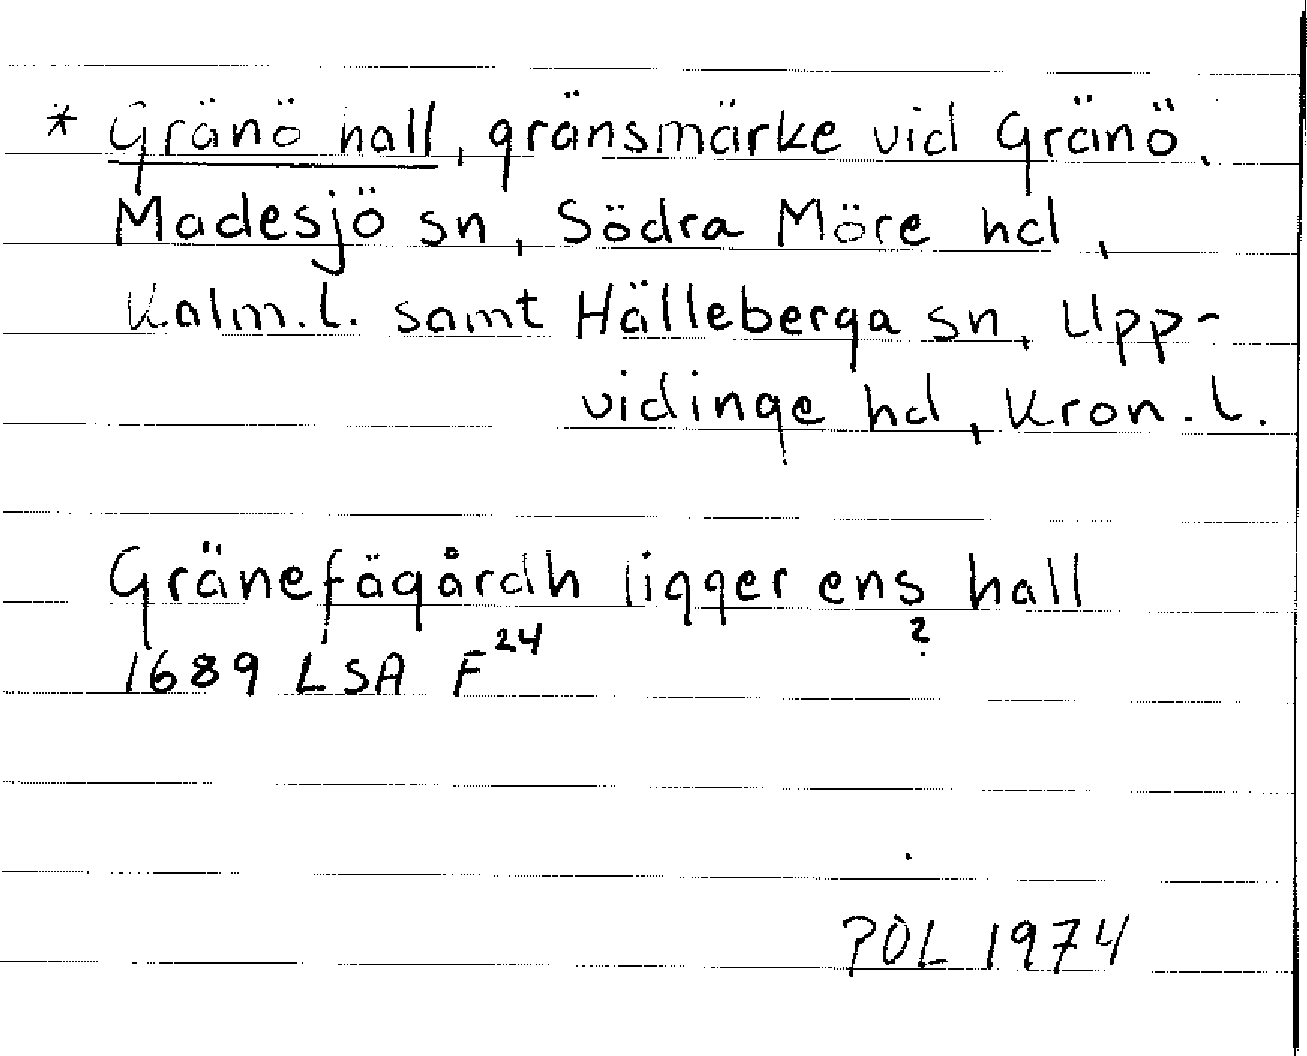 * Gränö hall, gränsmärke vid Gränö,
Madesjö sn, Södra Möre hd,
Kalm.l. samt Hälleberga sn, Upp-
vidinge hd, Kron.l.
Gränefägårdh ligger ens hall
?
1689 LSA F 24
POL 1974